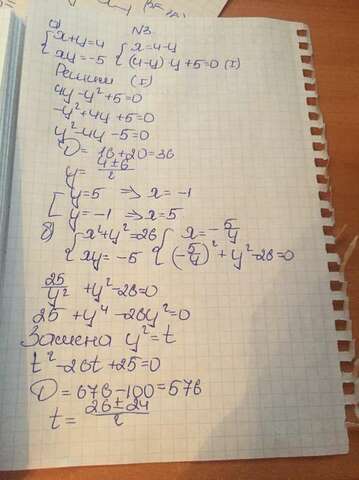 N3
а) { x+y=4 { x=4-y
xy=-5 (4-y) y+5=0 (I)
Решим (I)
4y-y²+5=0
-y²+4y+5=0
y²-4y-5=0
D=16+20=36
y= 4±6/2
[ y=5 ⇒ x=-1
y=-1 ⇒ x=5
б) { x²+y²=26 { x=-5/y
xy=-5 (-5/y)²+y²-26=0
25/y² +y²-26=0
25+y⁴-26y²=0
Замена y²=t
t²-26t+25=0
D=676-100=576
t= 26±24/2